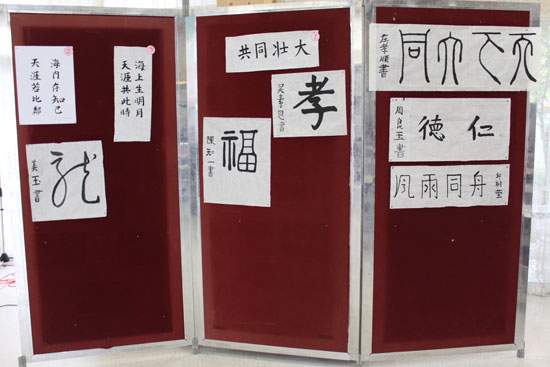 海内存知己
天涯若比鄰
海上生明月
天涯共此時
龍
美玉書
共同壮大
孝
福
陳知一書
天下大同
左孝順書
仁德
周良玉書
風雨同舟